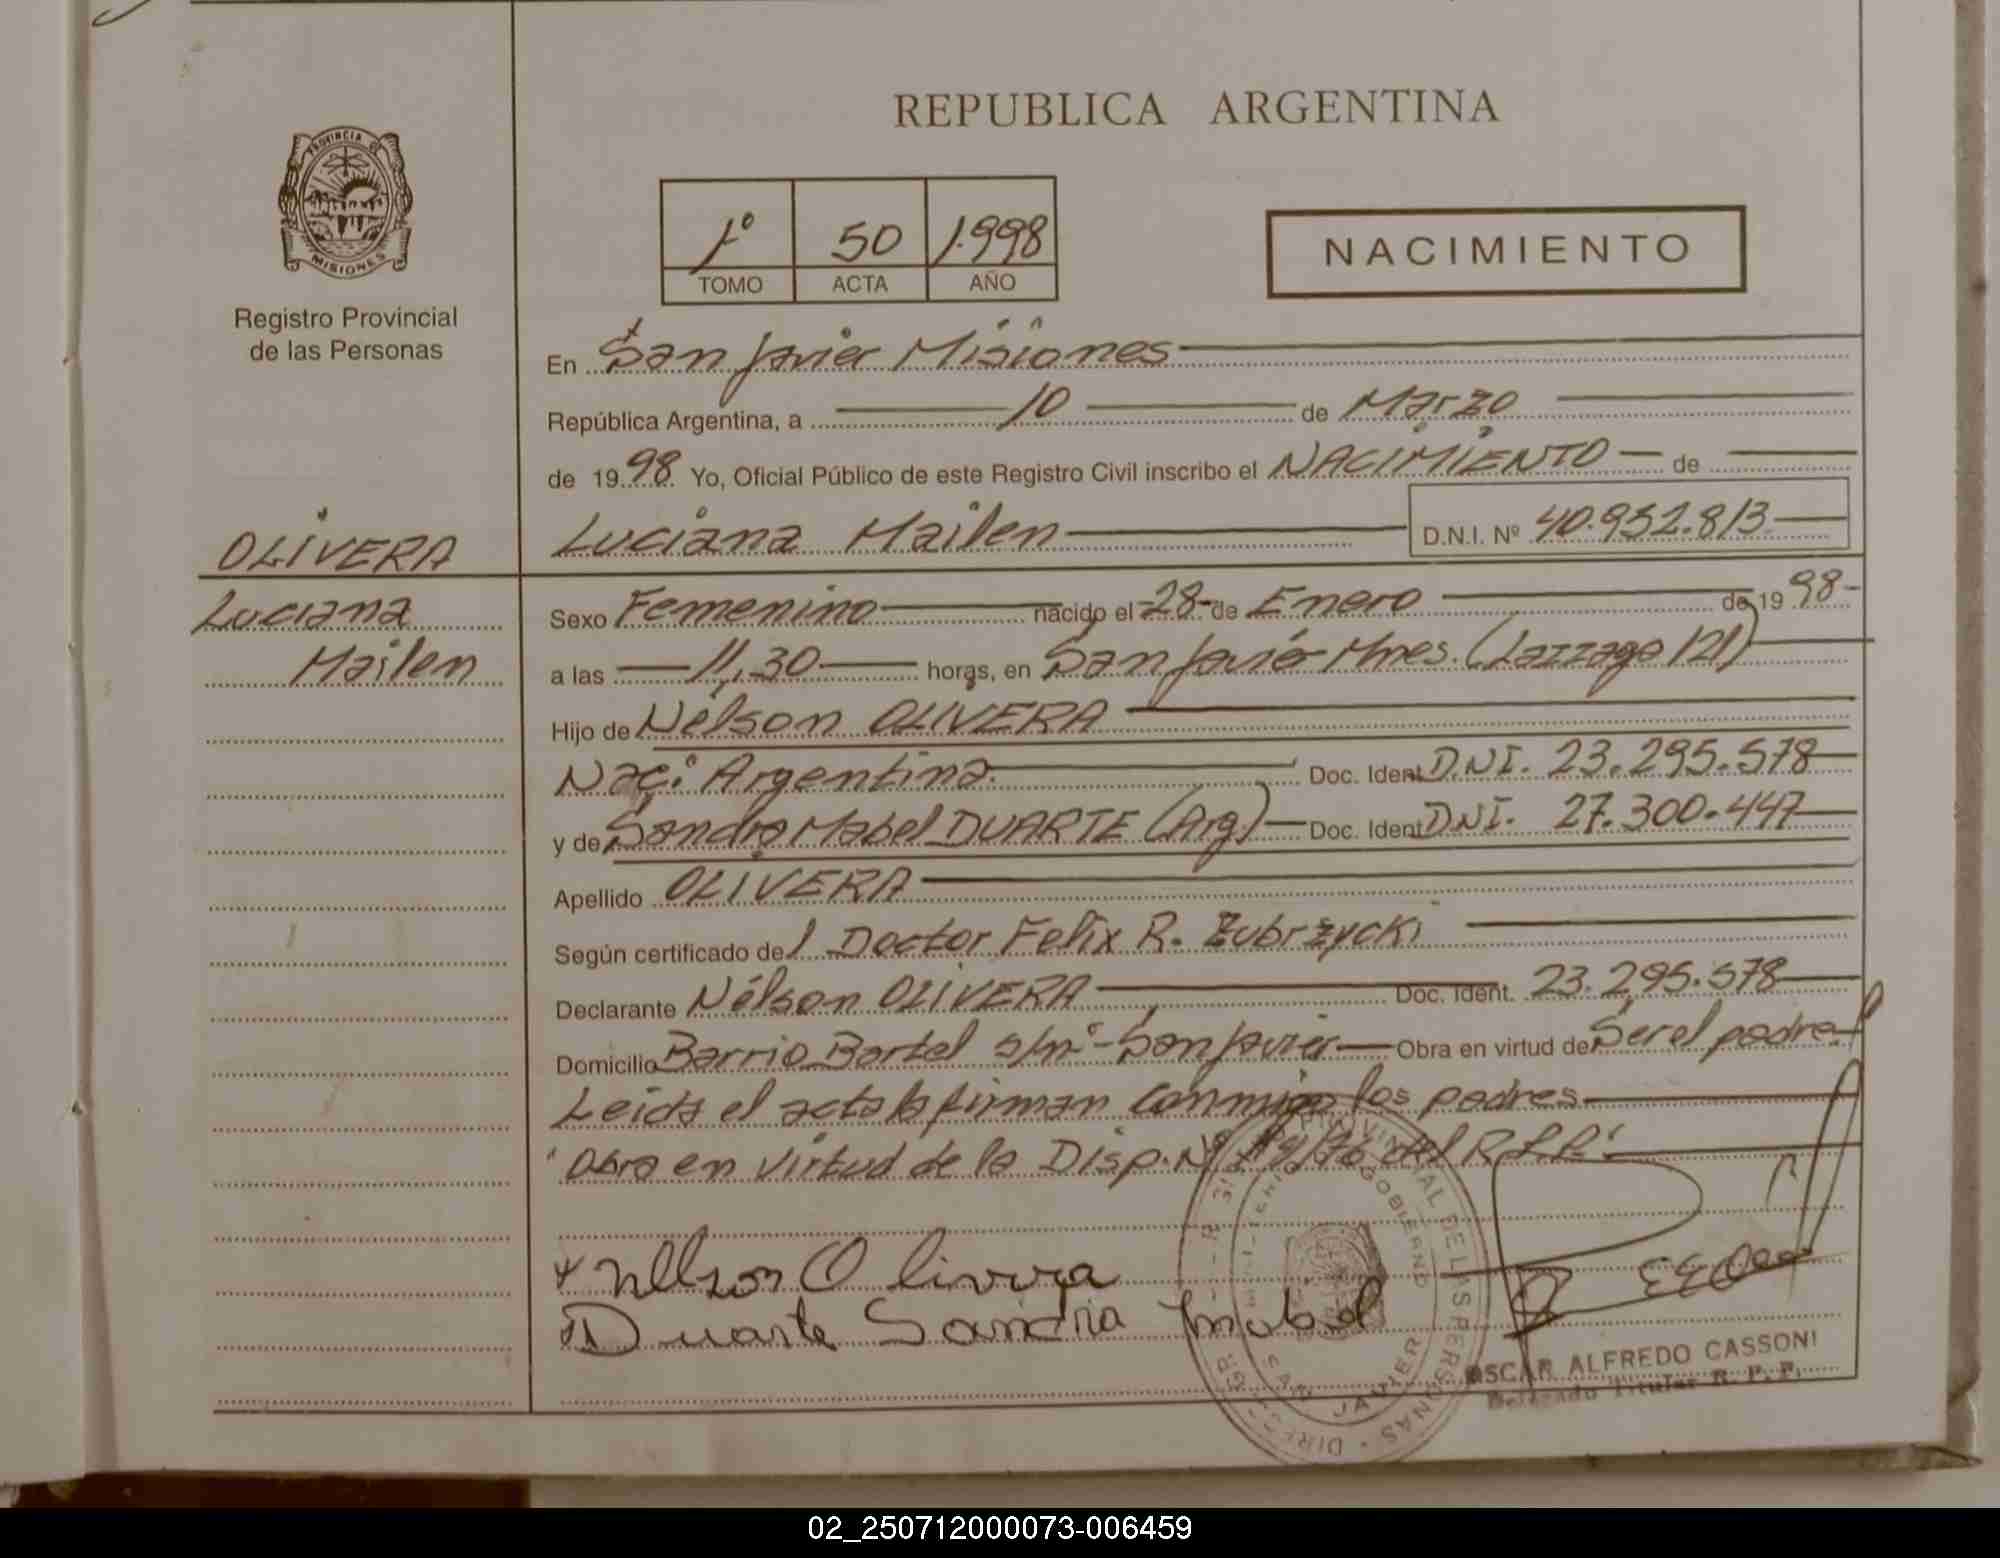 REPUBLICA ARGENTINA
PROVINCIA DE
MISIONES
Registro Provincial
de las Personas
1º 50 1.998
TOMO ACTA AÑO
NACIMIENTO
En San Javier Misiones
República Argentina, a 10 de Marzo
de 1998 Yo, Oficial Público de este Registro Civil inscribo el NACIMIENTO de
OLIVERA
Luciana Mailen D.N.I. Nº 40.952.813
Luciana
Mailen
Sexo Femenino nacido el 28 de Enero de 1998
a las 11,30 horas, en San Javier Mnes. (Lazzaga 121)
Hijo de Nélson OLIVERA
Nac: Argentina. Doc. Ident. D.N.I. 23.295.578
y de Sandra Mabel DUARTE (Arg) Doc. Ident. D.N.I. 27.300.447
Apellido OLIVERA
Según certificado del Doctor Felix R. Zubrzycki
Declarante Nélson OLIVERA Doc. Ident. 23.295.578
Domicilio Barrio Bartel s/nº - San Javier Obra en virtud de Ser el padre
Leida el acta la firman conmigo los padres
Obra en virtud de la Disp. Nº del R.P.P.
Nelson Olivera
Duarte Sandra Mabel
PROVINCIAL DE LAS PERSONAS
GOBIERNO
SAN JAVIER
OSCAR ALFREDO CASSONI
Delegado Titular R. P. P.
02_250712000073-006459